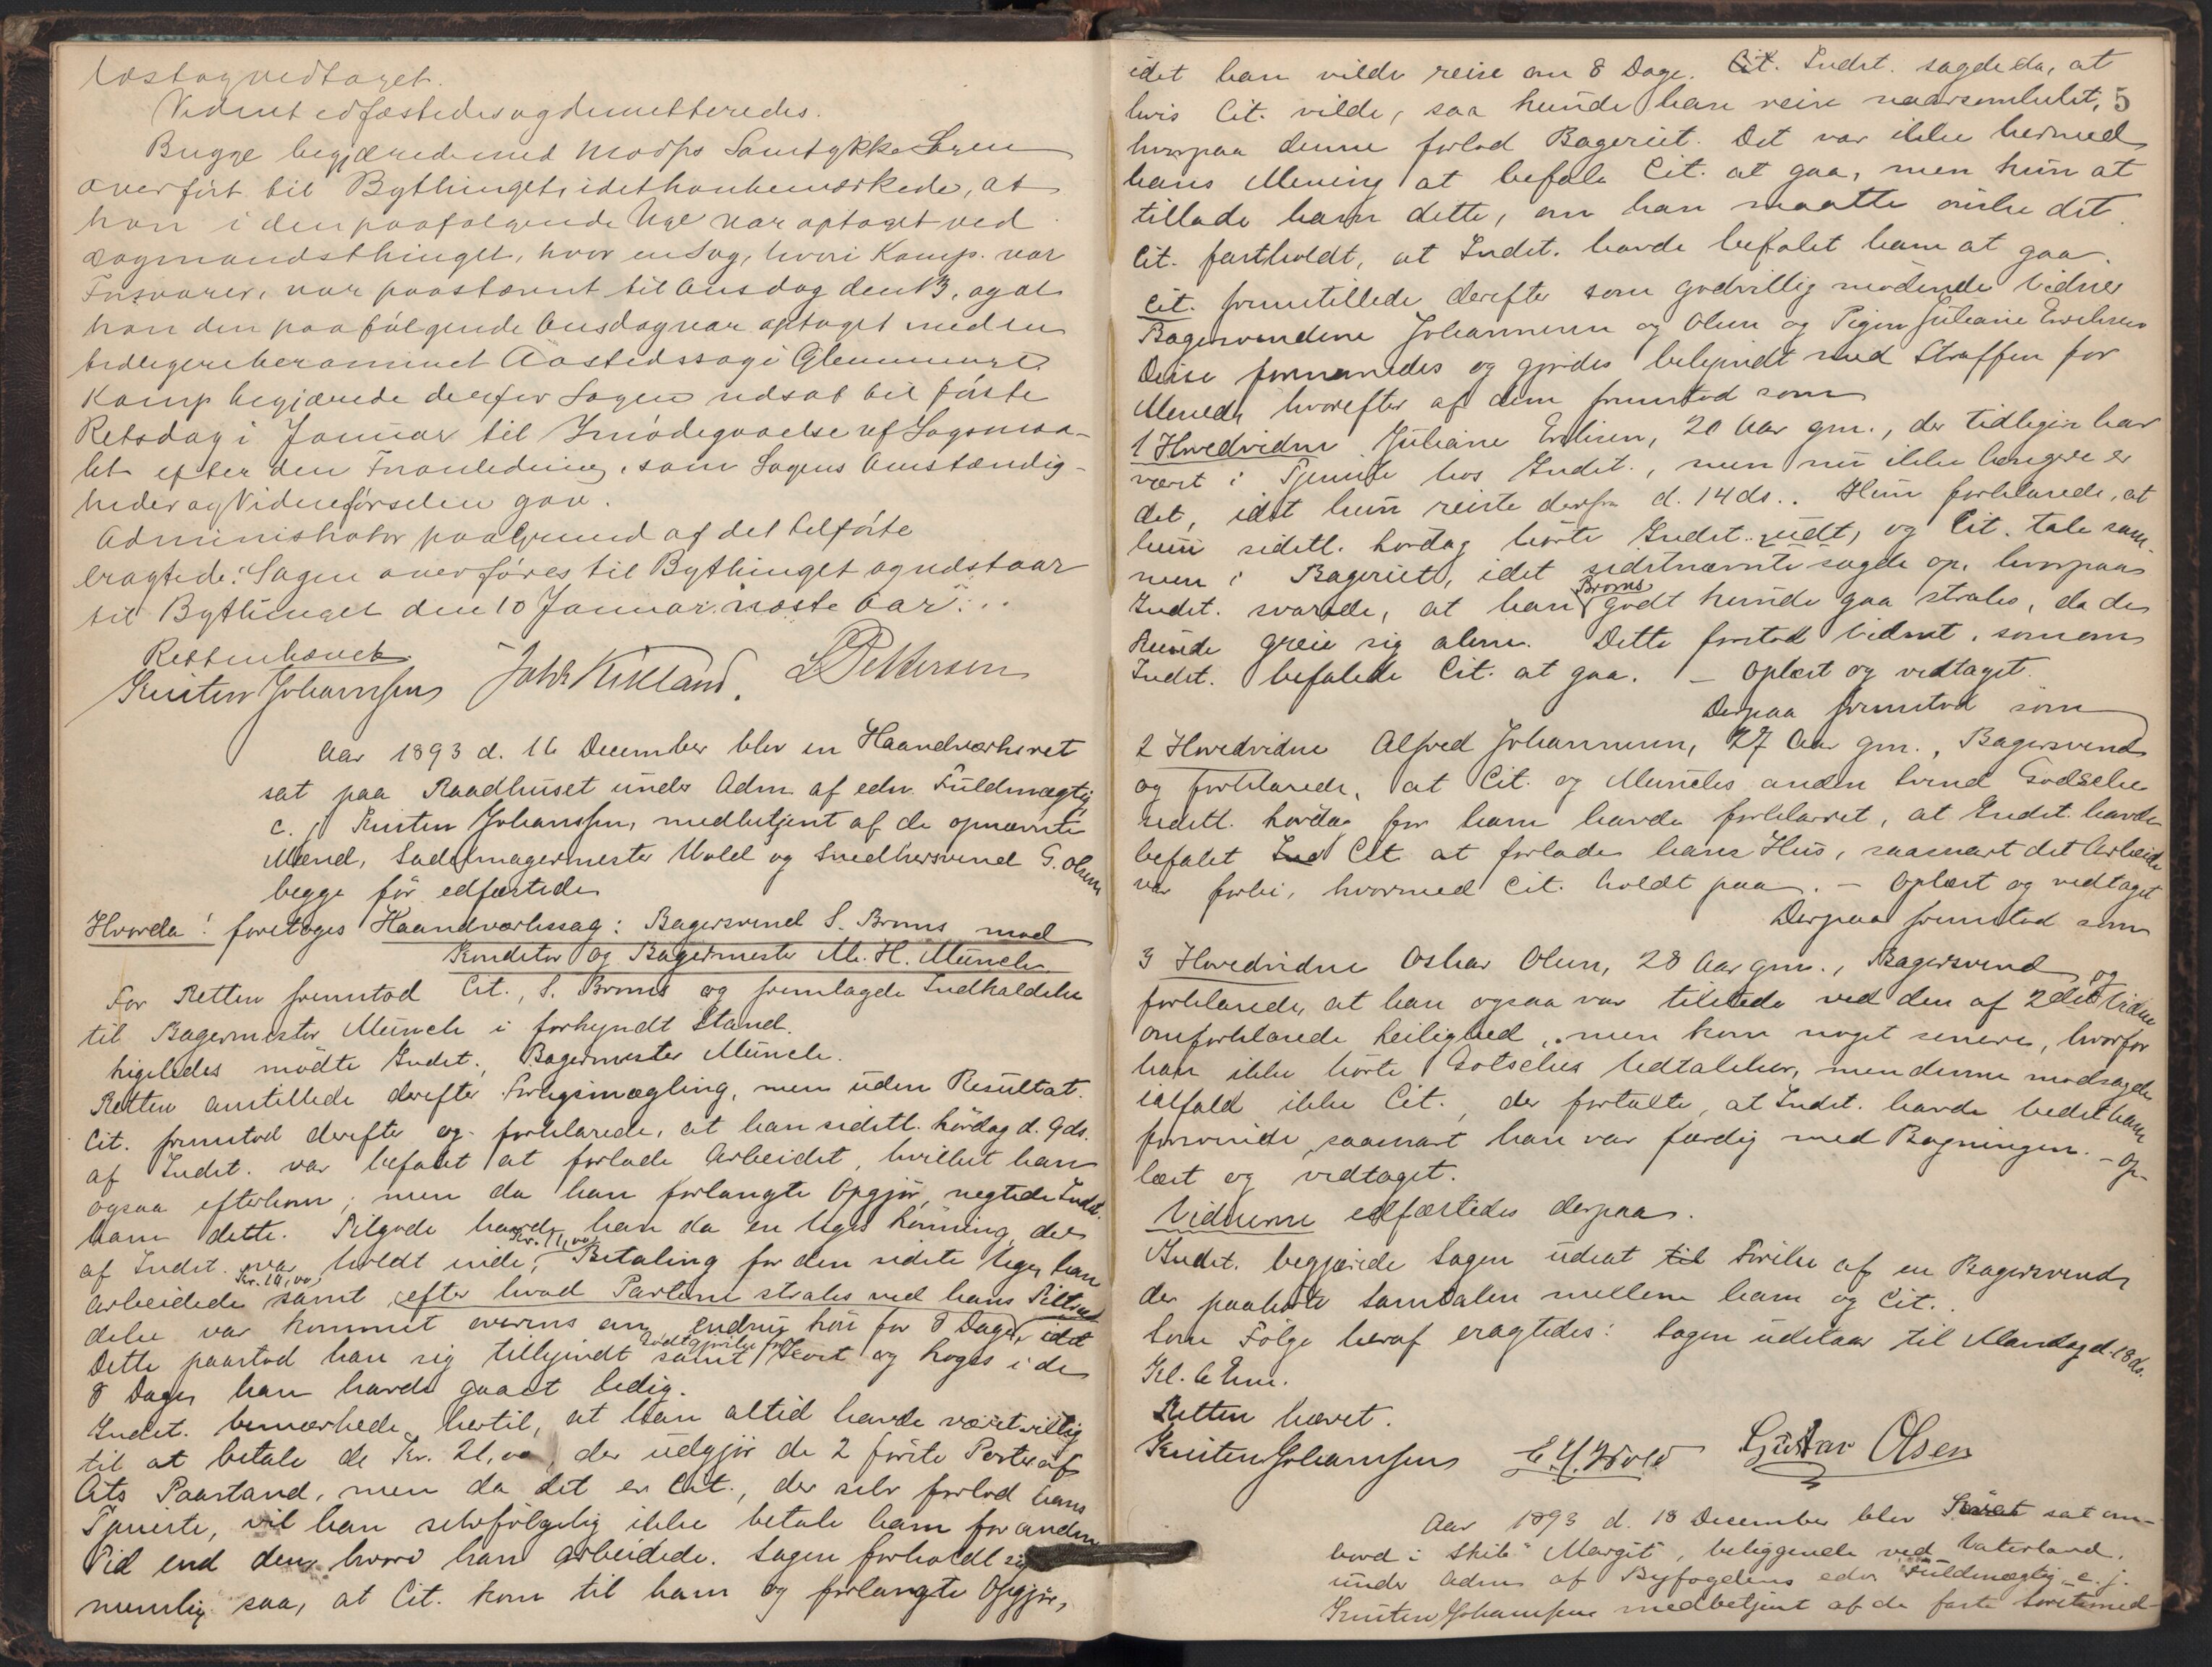 læst og vedtaget.
Vidnet edfæstedes og demitteredes.
Bugge begjærede med Modps Samtykke Sagen
overført til Bythinget, idet han bemærkede, at
han i den paafølgende Uge var optaget ved
Lagmandsthinget, hvor en Sag, hvori Kamp. var
Forsvarer, var paastævnt til Onsdag den 13, og at
han den paafølgende Onsdag var optaget med en
tidligere berammet Aastedssag i Glemminge.
Kamp begjærede derfor Sagen udsat til første
Retsdag i Januar til Imødegaaelse af Sagsmaa-
let efter den Foranledning, som Sagens Omstændig-
heder og Vidneførselen gav.
Administrator paa Grund af det tilførte
eragtede: Sagen overføres til Bythinget og udstaar
til Bythinget den 10 Januar næste Aar...
Retten hævet.
Kristen Johanssen Joh. Kirkland. L Pettersen
Aar 1893 d. 16 December blev en Haandværksret
sat paa Raadhuset under Adm. af edsv. Fuldmægtig
c. j. Kristen Johanssen, medbetjent af de opnævnte
Mænd, Sadelmagermester Wold og Snedkersvend G. Olsen
begge før edfæstede
Hvorda! foretoges Haandværkssag: Bagersvend S. Broms mod
Konditor og Bagermester M. H. Münch.
For Retten fremstod Cit., S. Broms og fremlagde Indkaldelse
til Bagermester Münch i forkyndt Stand.
Ligeledes mødte Indst., Bagermester Münch.
Retten anstillede derefter Forligsmægling, men uden Resultat.
Cit. fremstod derefter og forklarede, at han sidstl. Lørdag d. 9 ds.
af Indst. var befalet at forlade Arbeidet, hvilket han
ogsaa efterkom; men da han forlangte Opgjør, negtede Indst.
ham dette. Tilgode havde han da en Uges Lønning, der
af Indst. var holdt inde, Kr. 11,00 Betaling for den sidste Uge, han
arbeidede Kr. 10,00 samt efter hvad Parterne straks ved hans Tiltræ-
delse var kommet overens om, endnu Løn for 8 Dage, idet
Dette paastod han sig tilkjendt samt Godtgjørelse for Kost og Logis i de
8 Dage, han havde gaaet ledig.
Indst. bemærkede hertil, at han altid havde været villig
til at betale de Kr. 21,00, der udgjør de 2 første Poster af
Cits Paastand, men da det er Cit., der selv forlod hans
Tjeneste, vil han selvfølgelig ikke betale ham for anden
Tid end den, hvori han arbeidede. Sagen forholdt sig
nemlig saa, at Cit. kom til ham og forlangte Opgjør,
idet han vilde reise om 8 Dage. Cit. Indst. sagde da, at
hvis Cit. vilde, saa kunde han reise naarsomhelst, 5
hvorpaa denne forlod Bageriet. Det var ikke hermed
hans Mening at befale Cit. at gaa, men kun at
tillade ham dette, om han maatte ønske det.
Cit. fastholdt, at Indst. havde befalet ham at gaa.
Cit. fremstillede derefter som godvillig mødende Vidner
Bagersvendene Johannesen og Olsen og Pigen Juliane Eriksen
Disse formanedes og gjordes bekjendt med Straffen for
Mened, hvorefter af dem fremstod som
1 Hovedvidne Juliane Eriksen, 20 Aar gm., der tidligere har
været i Tjeneste hos Indst., men nu ikke længere er
det, idet hun reiste derfra d. 14 ds.. Hun forklarede, at
hun sidstl. Lørdag hørte Indst. udt, og Cit. tale sam-
men i Bageriet, idet sidstnævnte sagde op, hvorpaa
Indst. svarede, at han Broms godt kunde gaa straks, da de
kunde greie sig alene. Dette forstod Vidnet, som om
Indst. befalede Cit. at gaa. — Oplæst og vedtaget.
Derpaa fremstod som
2 Hovedvidne Alfred Johannesen, 27 Aar gm., Bagersvend
og forklarede, at Cit. og Münchs anden Svend Godselke
sidstl. Lørdag for ham havde forklaret, at Indst. havde
befalet Ind Cit at forlade hans Hus, saasnart det Arbeide
var forbi, hvormed Cit. holdt paa. — Oplæst og vedtaget
Derpaa fremstod som
3 Hovedvidne Oskar Olsen, 28 Aar gm., Bagersvend og
forklarede, at han ogsaa var tilstede ved den af 2det Vidne
omforklarede Leilighed, men kom noget senere, hvorfor
han ikke hørte Gotschks Udtalelser, men denne modsagde
ialfald ikke Cit., der fortalte, at Indst. havde bedet ham
forsvinde, saasnart han var færdig med Bagningen. — Op-
læst og vedtaget.
Vidnerne edfæstedes derpaa.
Indst. begjærede Sagen udsat til Førelse af en Bagersvend,
der paahørte Samtalen mellem ham og Cit..
Som Følge heraf eragtedes: Sagen udstaar til Mandag d. 18 ds.
Kl. 6 Em.
Retten hævet.
Kristen Johanssen E. H. Wold Gustav Olsen
Aar 1893 d. 18 December blev Søret sat om-
bord i Skib "Margit", beliggende ved Vaterland.
under Adm. af Byfogdens edsv Fuldmægtig c. j.
Kristen Johanssen medbetjent af de faste Søretsmed-